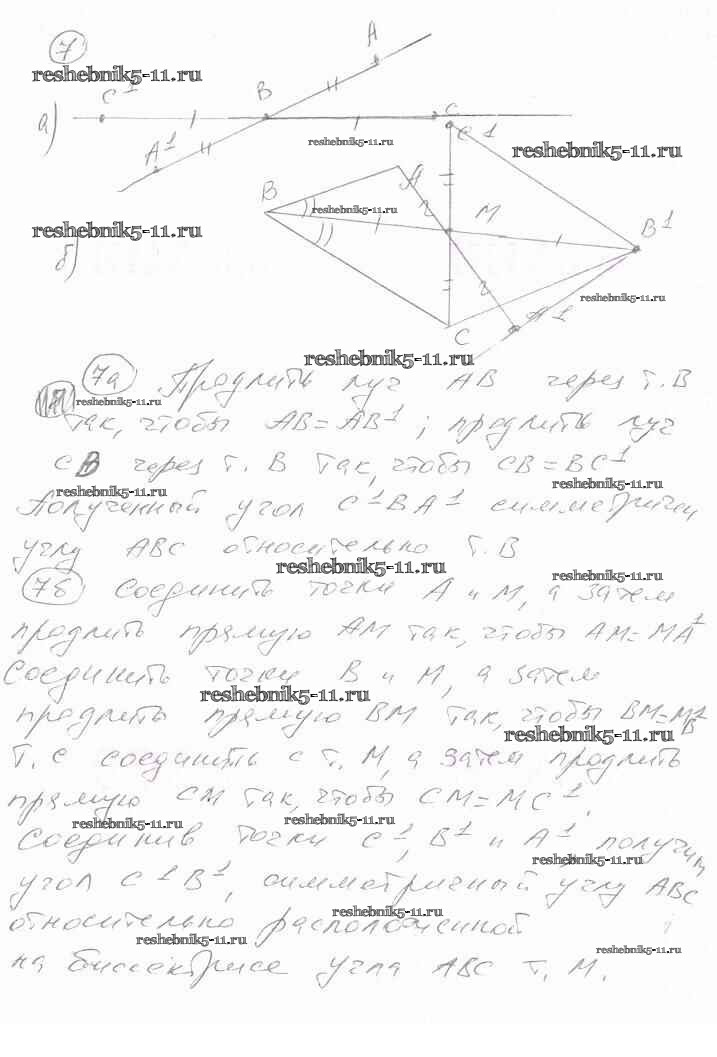 7
A
reshebnik5-11.ru
C¹
B
C
а)
reshebnik5-11.ru
C¹
reshebnik5-11.ru
A¹
A
B
reshebnik5-11.ru
M
B¹
reshebnik5-11.ru
б)
reshebnik5-11.ru
C
A¹
reshebnik5-11.ru
7а Продлить луч AB через т. B
reshebnik5-11.ru
так, чтобы AB = AB¹ ; продлить луч
CB через т. B так, чтобы CB = BC¹
reshebnik5-11.ru
reshebnik5-11.ru
Полученный угол C¹BA¹ симметричен
углу ABC относительно т. B
reshebnik5-11.ru
reshebnik5-11.ru
7б Соединить точки A и M, а затем
продлить прямую AM так, чтобы AM = MA¹
Соединить точки B и M, а затем
reshebnik5-11.ru
продлить прямую BM так, чтобы BM = MB¹
reshebnik5-11.ru
Т. C соединить с т. M, а затем продлить
прямую CM так, чтобы CM = MC¹.
reshebnik5-11.ru
reshebnik5-11.ru
Соединив точки C¹, B¹ и A¹ получим
reshebnik5-11.ru
угол C¹B¹, симметричный углу ABC
reshebnik5-11.ru
относительно расположенной
reshebnik5-11.ru
reshebnik5-11.ru
на биссектрисе угла ABC т. M.